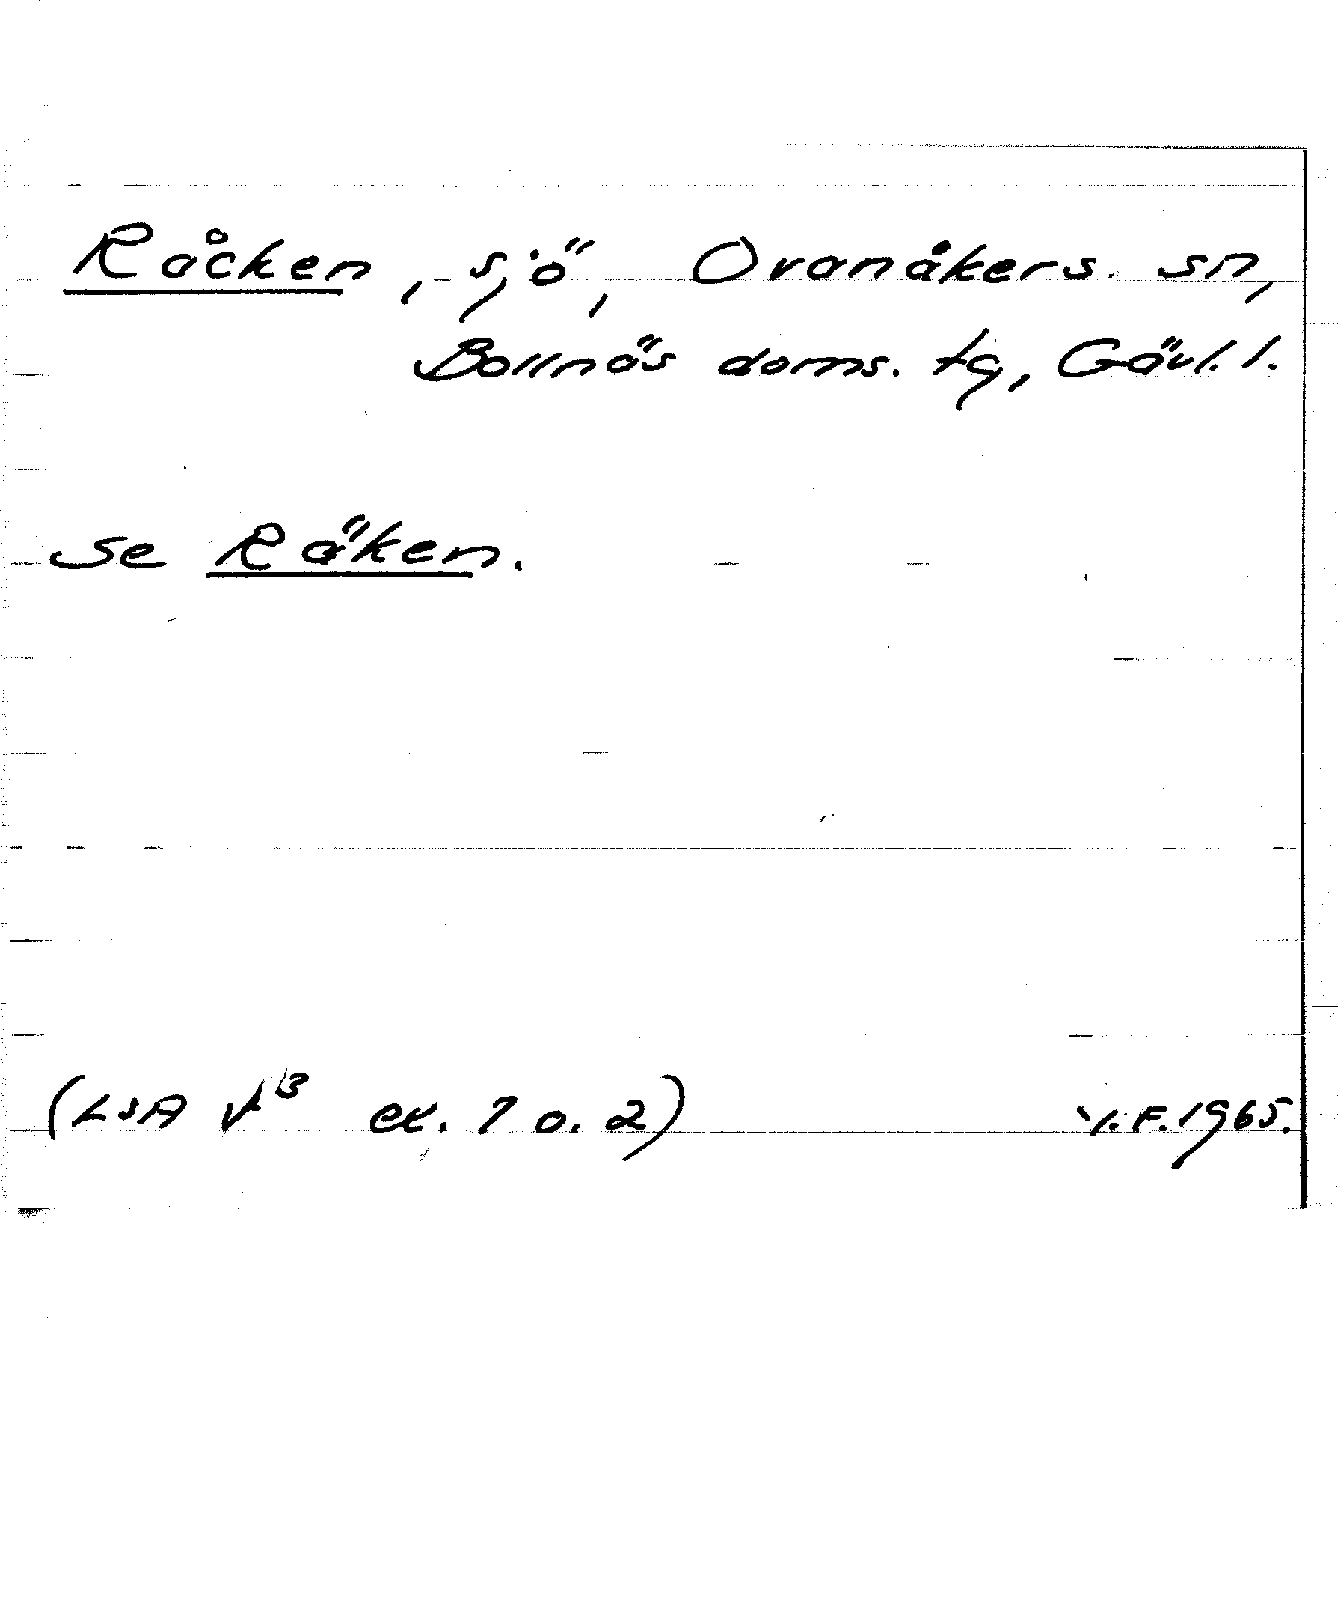 Råcken, sjö, Ovanåkers sn,
Bollnäs doms. tg, Gävl. l.
se Räken.
(LSA V³ ex. 1 o. 2)
Y.F. 1965.